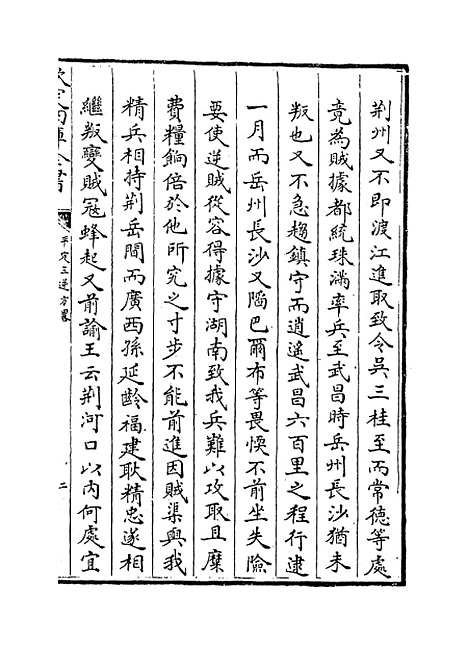 荆州又不即渡江進取致令吳三桂至而常德等處
竟為賊據都統珠滿率兵至武昌時岳州長沙猶未
叛也又不急趨鎮守而逍遙武昌六百里之程行逮
一月而岳州長沙又陷巴爾布等畏愞不前坐失險
要使逆賊從容得據守湖南致我兵難以攻取且糜
費糧餉倍於他所究之寸步不能前進因賊渠與我
精兵相持荆岳間而廣西孫延齡福建耿精忠遂相
繼叛變賊冦蜂起又前諭王云荆河口以内何處宜
欽定四庫全書
平定三逆方略
二